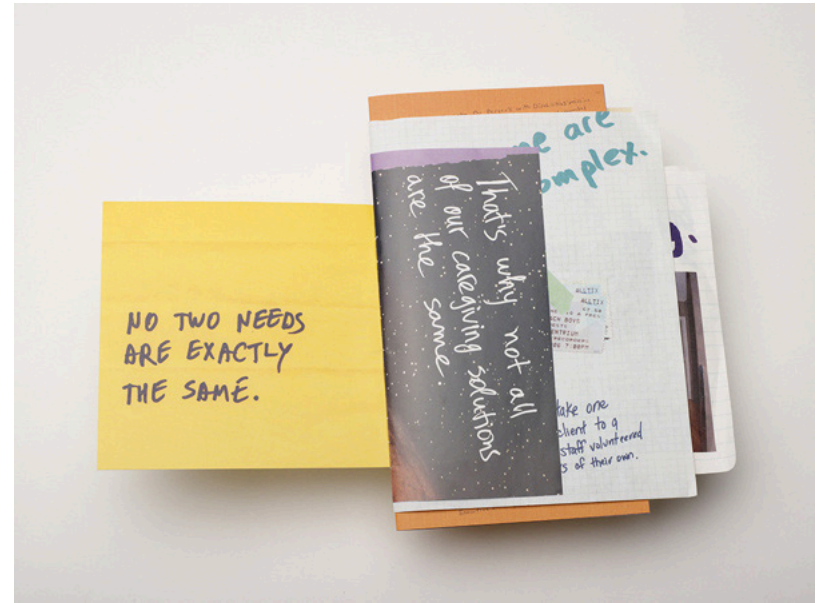 NO TWO NEEDS
ARE EXACTLY
THE SAME.
That's why not all
of our caregiving solutions
are the same.
are
omplex.
ALLTIX
ALLTIX
take one
client to a
staff volunteered
of their own.